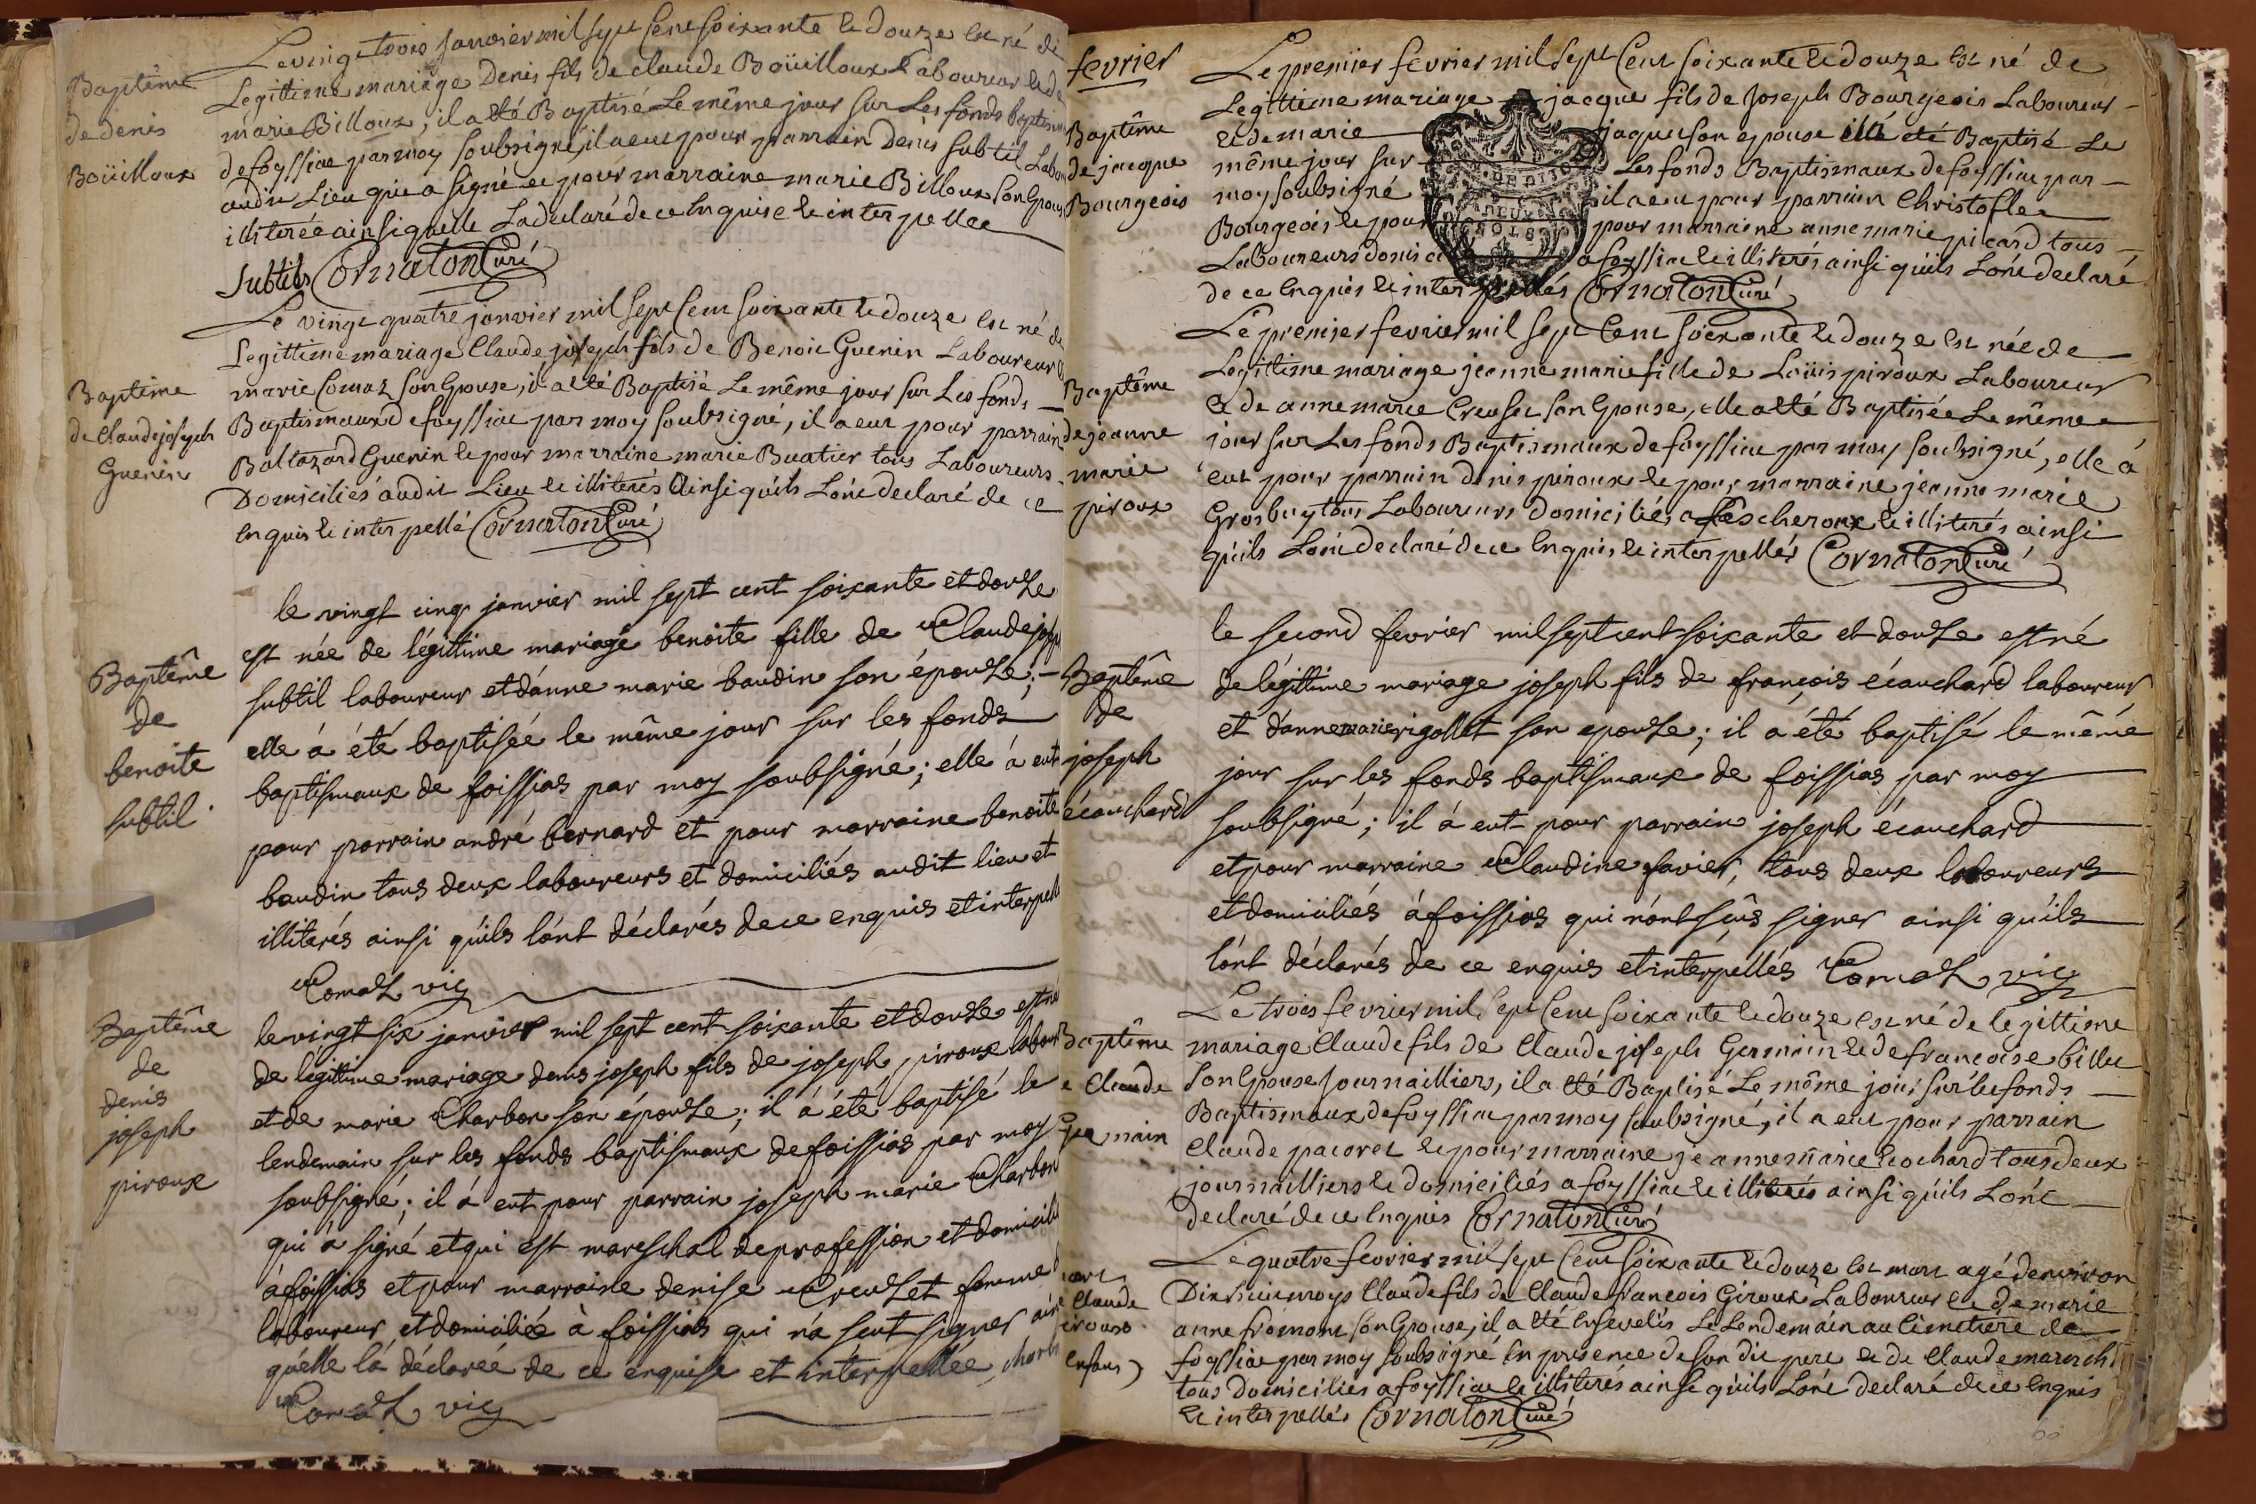 Baptême
de denis
Boüilloux
Le vingt trois Janvier mil sept Cent soixante et douze est né de
Legittime mariage Denis fils de claude Boüilloux Laboureur et de
marie Billoux, il a eté Baptisé Le même jour sur Les fonds baptismaux
de foyssiac par moy soubsigné, il a eut pour parrain denis subtil Labou
audit Lieu qui a signé et pour marraine marie Billoux son Epouse
illiterée ainsi quelle La declaré de ce Enquise et interpellee
Subtils Cornaton Curé
Baptême
de Claude joseph
Guenin
Le vingt quatre janvier mil sept Cent soixante et douze est né de
Legittime mariage Claude joseph fils de Benoit Guenin Laboureur
marie Comaz son Epouse, il a eté Baptisé Le même jour sur Les fonds
Baptismaux de foyssiac par moy soubsigné, il a eut pour parrain
Baltazard Guenin et pour marraine marie Buatier tous Laboureurs
Domiciliés audit Lieu et illiterés Ainsi qu'ils L'ont declaré de ce
Enquis et interpellé Cornaton Curé
Baptême
de
benoite
subtil.
le vingt cinq janvier mil sept cent soixante et douze
est née de légittime mariage benoite fille de Claude joseph
subtil laboureur et d'anne marie baudin son épouze;
elle à été baptisée le même jour sur les fonds
baptismaux de foissias par moy soubsigné; elle à eut
pour parrain andré bernard et pour marraine benoite
baudin tous deux laboureurs et domiciliés audit lieu et
illitarés ainsi qu'ils l'ont déclarés de ce enquis et interpellés
Comaz vic
Baptême
de
denis
joseph
piroux
le vingt six janvier mil sept cent soixante et douze est né
de légittime mariage denis joseph fils de joseph piroux labour
et de marie Charbon son épouze; il à été baptisé le
lendemain sur les fonds baptismaux de foissias par moy
soubsigné; il à eut pour parrain joseph marie Charbon
qui à signé et qui est mareschal de profession et domicilié
à foissias et pour marraine denise Creuzet femme
laboureur et domiciliée à foissias qui n'a seut signer
qu'elle l'a déclarée de ce enquise et interpellée
Comaz vic
fevrier
Baptême
de jacque
Bourgeois
Le premier fevrier mil sept Cent soixante et douze est né de
Legittime mariage jacque fils de Joseph Bourgeois Laboureur
et de marie jaquet son epouse il a eté Baptisé Le
même jour sur Les fonds Baptismaux de foyssiac par
moy soubsigné il a eut pour parrain Christofle
Bourgeois et pour pour marraine anne marie picard tous
Laboureurs domici a foyssiac et illiterés ainsi qu'ils L'ont declaré
de ce Enquis et interpellés Cornaton Curé
Baptême
de jeanne
marie
piroux
Le premier fevrier mil sept Cent soixante et douze est née de
Legittime mariage jeanne marie fille de Loüis piroux Laboureur
et de anne marie Creuset son Epouse, elle a eté Baptisée Le même
jour sur Les fonds Baptismaux de foyssiac par moy soubsigné, elle a
eut pour parrain denis piroux et pour marraine jeanne marie
Grosbuy tous Laboureurs domiciliés a Lescheroux et illiterés ainsi
qu'ils L'ont declaré de ce Enquis et interpellés Cornaton Curé
Baptême
de
joseph
écauchard
le second fevrier mil sept cent soixante et douze est né
de légittime mariage joseph fils de françois écauchard laboureur
et d'anne marie rigollet son epouze; il a été baptisé le même
jour sur les fonds baptismaux de foissias par moy
soubsigné; il à eut pour parrain joseph écauchard
et pour marraine Claudine favier, tous deux laboureurs
et domiciliés à foissias qui n'ont sûs signer ainsi qu'ils
l'ont déclarés de ce enquis et interpéllés Comaz vic
Baptême
e Claude
Germain
Le trois fevrier mil sept Cent soixante et douze est né de legittime
mariage Claude fils de Claude joseph Germain et de francoise billet
son Epouse Journailliers, il a eté Baptisé Le même jour sur les fonds
Baptismaux de foyssiac par moy soubsigné, il a eut pour parrain
Claude pacoret et pour marraine jeanne marie cochard tous deux
journailliers et domiciliés a foyssiac et illiterés ainsi qu'ils L'ont
declaré de ce Enquis Cornaton Curé
mort
Claude
iroux
Enfans
Le quatre fevrier mil sept Cent soixante et douze est mort agé d'environ
Dix huit moys Claude fils de Claude francois Giroux Laboureur et de marie
anne fromont son Epouse, il a eté Ensevelis Le Lendemain au Cimetiere de
foyssiac par moy soubsigné En presence de son dit pere et de Claude marech
tous Domiciliés a foyssiac et illiterés ainsi qu'ils L'ont declaré de ce Enquis
et interpellés Cornaton Curé